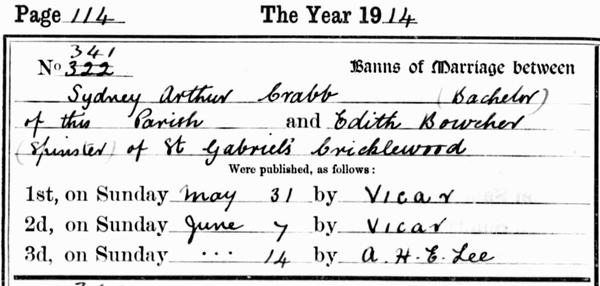 Page 114 The Year 1914
341
No 322 Banns of Marriage between
Sydney Arthur Crabb (Bachelor)
of this Parish and Edith Bowcher
(Spinster) of St Gabriel's Cricklewood
Were published, as follows:
1st, on Sunday May 31 by Vicar
2d, on Sunday June 7 by Vicar
3d, on Sunday ... 14 by A. H. E. Lee